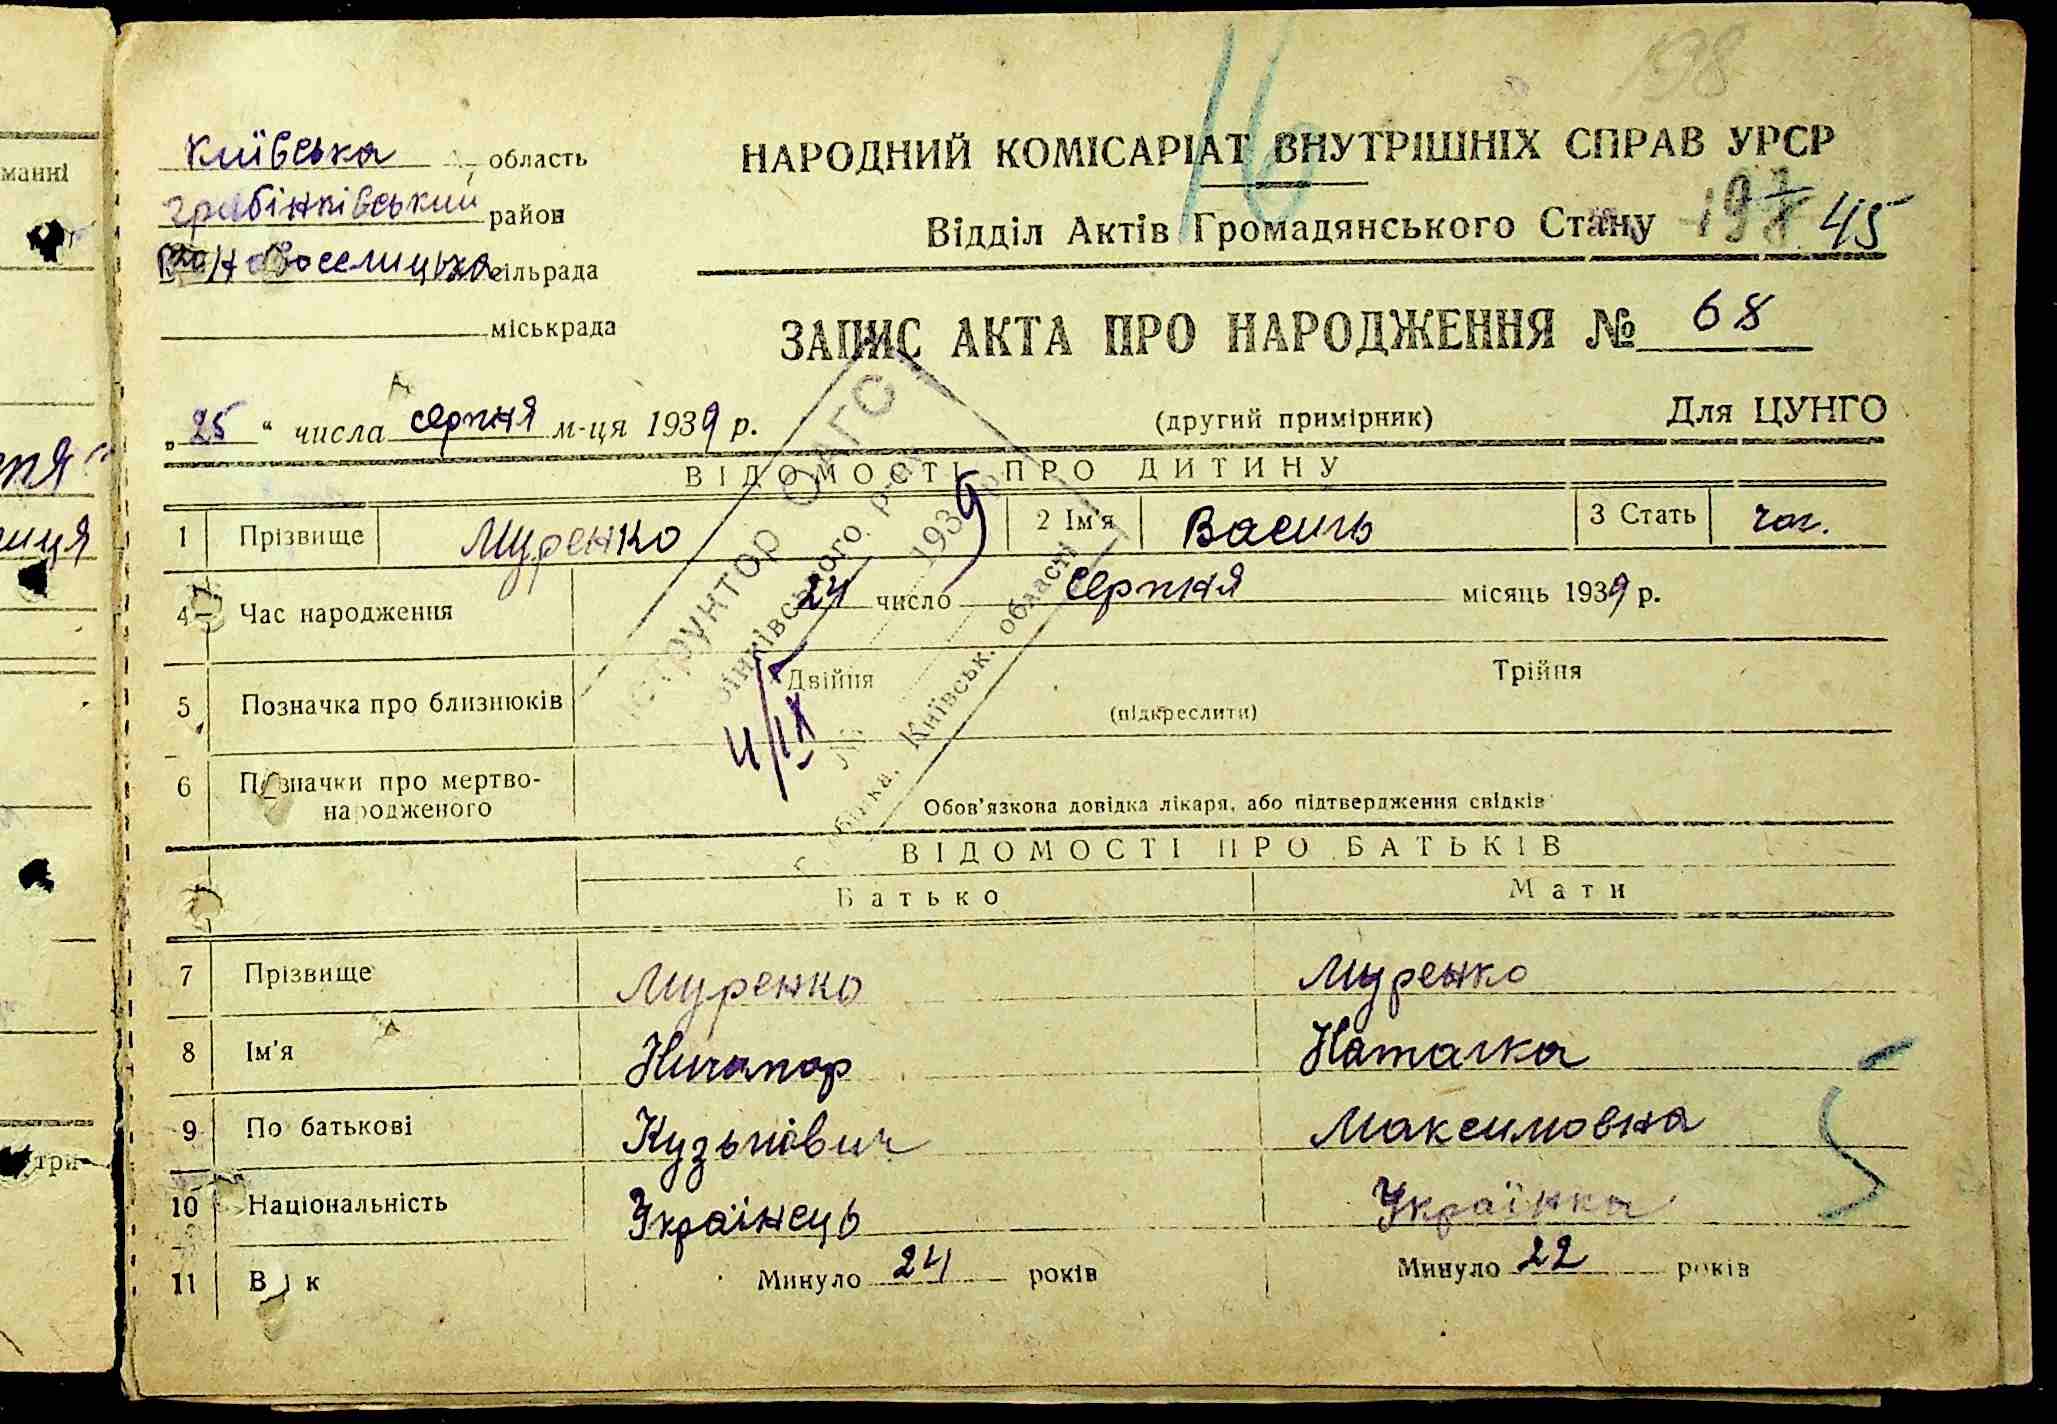 198
16
Київська область
НАРОДНИЙ КОМІСАРІАТ ВНУТРІШНІХ СПРАВ УРСР
гребінківський район
Відділ Актів Громадянського Стану 197 45
новоселицька сільрада
міськрада
ЗАПИС АКТА ПРО НАРОДЖЕННЯ № 68
„25“ числа серпня м-ця 1939 р.
(другий примірник)
Для ЦУНГО
ВІДОМОСТІ ПРО ДИТИНУ
1 Прізвище Муренко 2 Ім'я Василь 3 Стать чол.
4 Час народження 24 число серпня місяць 1939 р.
5 Позначка про близнюків Двійня Трійня
(підкреслити)
6 Позначки про мертво-
народженого
Обов'язкова довідка лікаря, або підтвердження свідків
Інструктор ОАГС
інківського р-ну
4/IX 1939 р.
№
Київськ. області
ВІДОМОСТІ ПРО БАТЬКІВ
Батько Мати
7 Прізвище Муренко Муренко
8 Ім'я Ничипор Наталка
9 По батькові Кузьмович Максимовна
10 Національність Українець Українка
11 Вік Минуло 24 років Минуло 22 років
манні
три